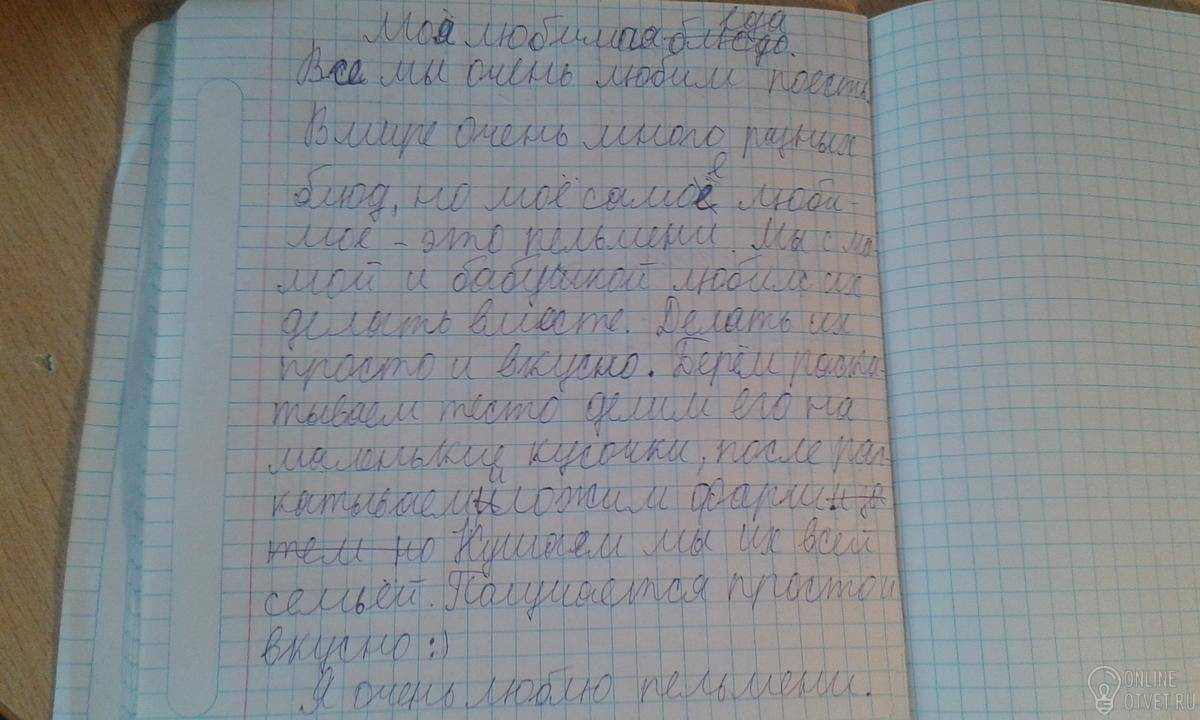 еда
Моя любимая блюдо.
Все мы очень любим поесть.
В мире очень много разных
блюд, но моё самое люби-
мое - это пельмени. Мы с ма-
мой и бабушкой любим их
делать вместе. Делать их
просто и вкусно. Берём раска-
тываем тесто делим его на
маленькие кусочки, после рас-
катываем и ложим фарш
Кушаем мы их всей
семьёй. Получается просто и
вкусно :)
Я очень люблю пельмени.
ONLINE
OTVET.RU